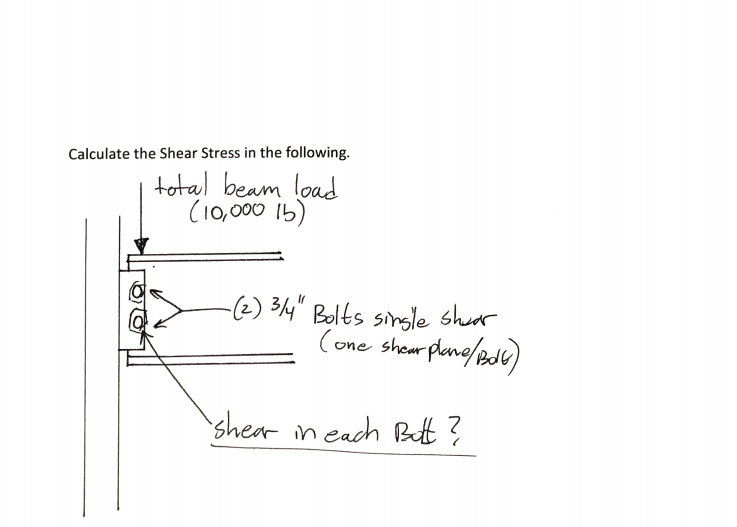 Calculate the Shear Stress in the following.
total beam load
(10,000 lb)
(2) 3/4" Bolts single shear
(one shear plane/Bolt)
shear in each Bolt ?